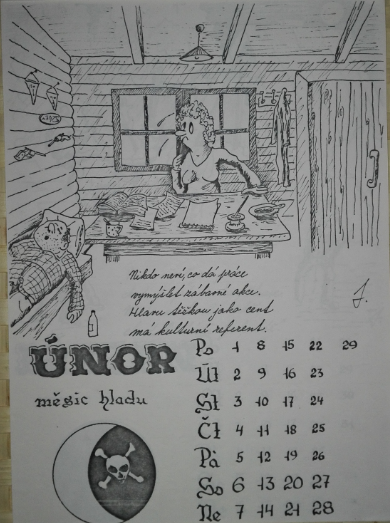 Nikdo neví, co dá práce
vymýšlet zábavné akce.
Hlavu těžkou jako cent
má kulturní referent.
J.
ÚNOR
měsíc hladu
Po 1 8 15 22 29
Út 2 9 16 23
St 3 10 17 24
Čt 4 11 18 25
Pá 5 12 19 26
So 6 13 20 27
Ne 7 14 21 28